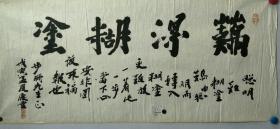 難得糊塗
聰明
難
糊塗
難由聰
明而
轉入
糊塗
更難放
一着退
一步
當下心
安非圖
後來福
報也
先生正
孟夏